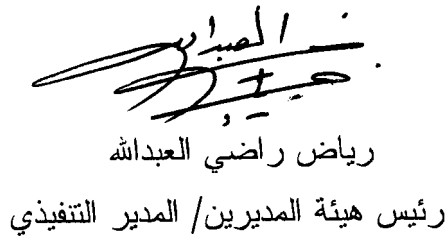 رياض راضي العبدالله
رئيس هيئة المديرين/ المدير التنفيذي